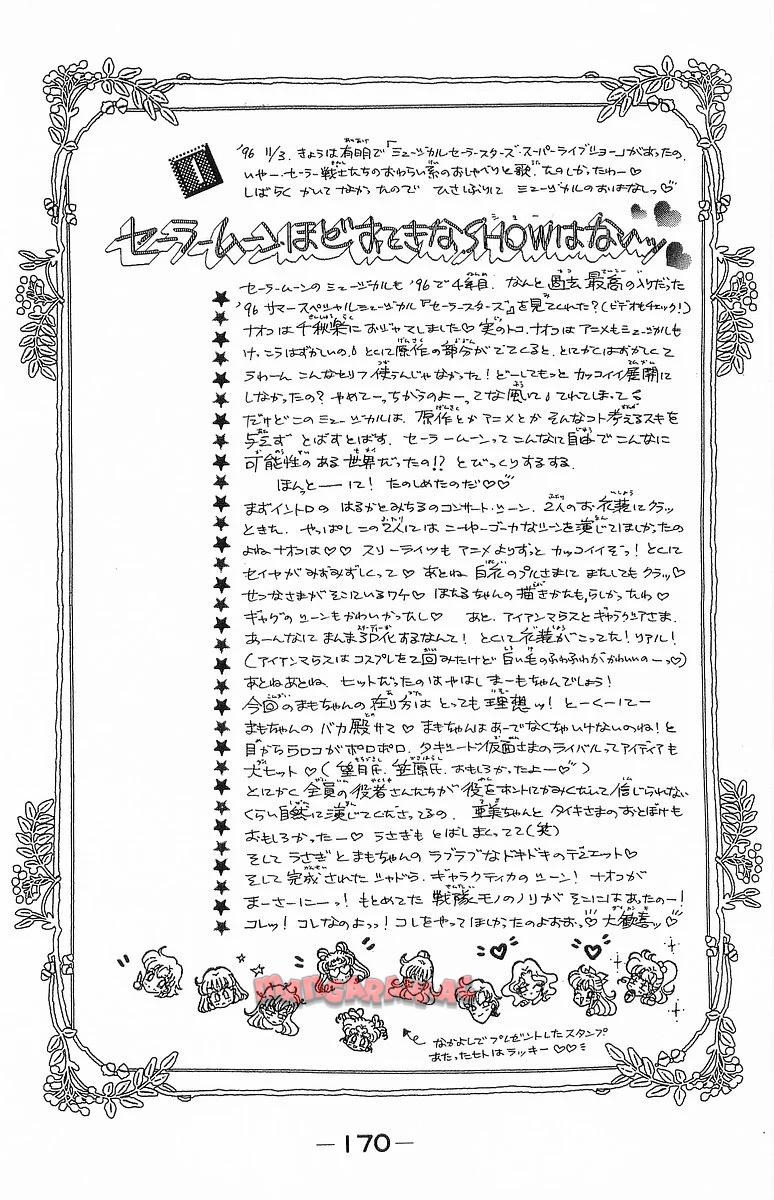 1
'96 11/3. きょうは有明で「ミュージカルセーラースターズ・スーパーライブショー」があったの。
いやー、セーラー戦士たちのおわらい系のおしゃべりと歌、たのしかったわー♡
しばらくかいてなかったので ひさぶりに ミュージカルのおはなしっ♡
セーラームーンほどすてきなSHOWはないッ
セーラームーンのミュージカルも'96で4年目。なんと過去最高の入りだった
'96 サマースペシャルミュージカル『セーラースターズ』を見てくれた?(ビデオもチェック!)
ナオコは千秋楽におジャマしました♡ 実のトコ、ナオコはアニメもミュージカルも
けっこうはずかしいの。とくに原作の部分がでてくると、とにかくはずかしくて
うわーん こんなセリフ使うんじゃなかった!どーしてもっとカッコイイ展開に
しなかったの?やめてーっちからのよーってな風に、てれてしまってる
だけどこのミュージカルは、原作とかアニメとかそんなコト考えるスキを
与えず とばすとばす。セーラームーンってこんなに自由でこんなに
可能性のある世界だったの!?とびっくりするする。
ほんっとーーに!たのしめたのだ♡♡
まずイントロの はるかとみちるのコンサート・シーン。2人のお衣装にクラッ
ときた。やっぱしこの2人には こーゆーゴーカなシーンを演じてほしかったの
よねナオコは♡♡ スリーライツもアニメよりずっとカッコイイぞっ!とくに
セイヤがみずみずしくって♡ あとね 白衣のプルさまに またしてもクラッ♡
せつなさまがそこにいるワケ♡ ほたるちゃんの描きかたも、らしかったわ♡
ギャグのシーンもかわいかったし♡ あと、アイアンマウスとギャラクシアさま、
あーんなにまんま3D化するなんて!とくに衣装がこってた!リアル!
(アイアンマウスはコスプレをで2回みたけど 白い毛のふわふわがかわいいのーっ♡)
あとねあとね、ヒットだったのはやはしまーもちゃんでしょう!
今回のまもちゃんの在り方はとっても理想ッ!とーくーにー
まもちゃんの バカ殿サマ♡ まもちゃんはあーでなくちゃいけないのね!と
目からウロコがポロポロ。タキシード仮面さまのライバルってアイディアも
大ヒット♡(望月氏、笠原氏、おもしろかったよー♡)
とにかく全員の役者さんたちが役をホントにかみくだいて信じられない
くらい自然に演じてくださってるの。亜美ちゃんとタイキさまのおとぼけも
おもしろかったー♡ うさぎもとばしまくってて(笑)
そしてうさぎとまもちゃんのラブラブなドキドキのデュエット♡
そして完成されたシャドウ・ギャラクティカのシーン!ナオコが
まーさーにーっ!もとめてた戦隊モノのノリがそこにはあったのー!
コレッ!コレなのよっっ!コレをやってほしかったのよおおっ♡大歓喜ッ♡
なかよしでプレゼントしたスタンプ
あたったヒトはラッキー♡♡
—170—